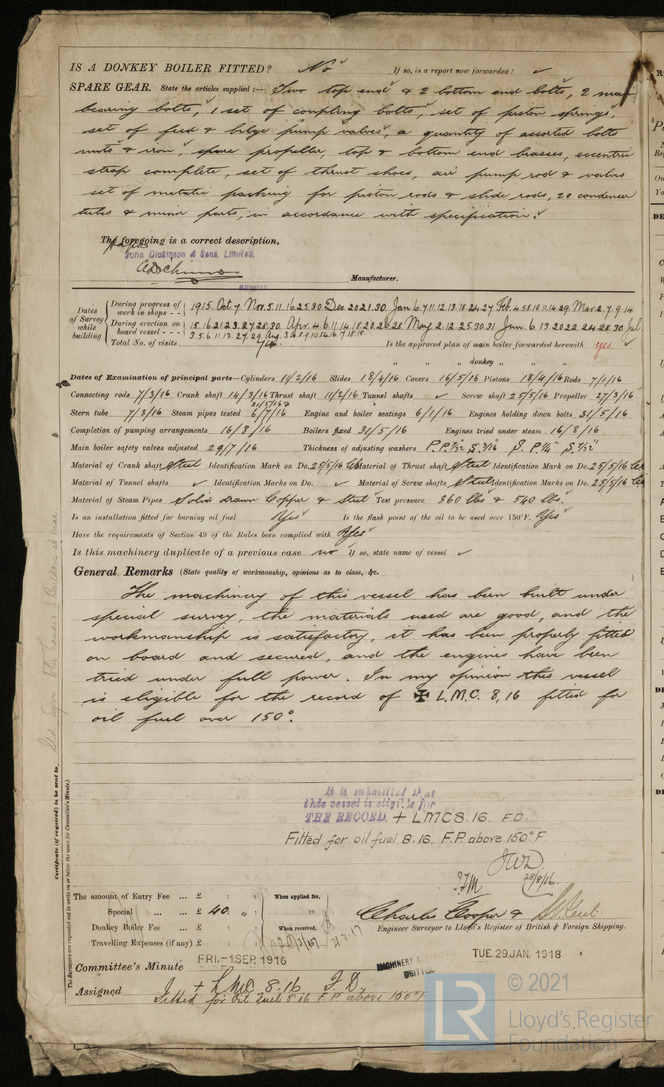 IS A DONKEY BOILER FITTED? No If so, is a report now forwarded? ✓
SPARE GEAR. State the articles supplied:— Two top end & 2 bottom end bolts, 2 main
bearing bolts, 1 set of coupling bolts, set of piston springs,
set of feed & bilge pump valves, a quantity of assorted bolts
nuts & iron, spare propeller, top & bottom end brasses, eccentric
strap complete, set of thrust shoes, air pump rod & valves
set of metallic packing for piston rods & slide rods, 20 condenser
tubes & minor parts, in accordance with specification.
The foregoing is a correct description,
John Dickinson & Sons, Limited.
Manufacturer.
Dates of Survey while building
During progress of work in shops - - 1915 Oct. 7 Nov. 5. 11. 16. 25. 30 Dec 20 21. 30 Jan 6. 7. 11. 12. 13. 18. 24. 27 Feb. 4. 5. 8. 10. 11. 14. 29. Mar. 2. 7. 9. 14
During erection on board vessel - - - 15. 16. 21. 23. 27. 28. 30 Apr. 4. 6. 11. 14. 18. 20. 26. 28 May 2. 12. 25. 30. 31 Jun. 6. 13 20. 22. 24. 28. 30 Jul
Total No. of visits
Is the approved plan of main boiler forwarded herewith yes
" " " donkey " "
Dates of Examination of principal parts—Cylinders 11/2/16 Slides 18/4/16 Covers 16/5/16 Pistons 18/4/16 Rods 7/1/16
Connecting rods 7/3/16 Crank shaft 14/3/16 Thrust shaft 11/2/16 Tunnel shafts ✓ Screw shaft 25/5/16 Propeller 27/3/16
Stern tube 7/3/16 Steam pipes tested 6/7/16 Engine and boiler seatings 6/1/16 Engines holding down bolts 31/5/16
Completion of pumping arrangements 16/8/16 Boilers fixed 31/5/16 Engines tried under steam 16/8/16
Main boiler safety valves adjusted 29/7/16 Thickness of adjusting washers
Material of Crank shaft Steel Identification Mark on Do. 25/5/16 Material of Thrust shaft Steel Identification Mark on Do. 25/5/16
Material of Tunnel shafts ✓ Identification Marks on Do. ✓ Material of Screw shafts Steel Identification Marks on Do. 25/5/16
Material of Steam Pipes Solid drawn Copper & Steel Test pressure 360 lbs & 540 lbs.
Is an installation fitted for burning oil fuel Yes Is the flash point of the oil to be used over 150°F. Yes
Have the requirements of Section 49 of the Rules been complied with Yes
Is this machinery duplicate of a previous case no If so, state name of vessel ✓
General Remarks (State quality of workmanship, opinions as to class, &c.
The machinery of this vessel has been built under
special survey, the materials used are good, and the
workmanship is satisfactory, it has been properly fitted
on board and secured, and the engines have been
tried under full power. In my opinion this vessel
is eligible for the record of ✠ L.M.C. 8,16 fitted for
oil fuel over 150°.
It is submitted that
this vessel is eligible for
THE RECORD. + LMC 8.16 F.D.
Fitted for oil fuel 8.16. F.P. above 150°F
JWD
28/8/16
The amount of Entry Fee ... £ : : When applied for,
Special ... ... £ 40 " :
Donkey Boiler Fee ... £ : : When received,
Travelling Expenses (if any) £ : :
Charles Cooper &
Engineer Surveyor to Lloyd's Register of British & Foreign Shipping.
Committee's Minute FRI.-1 SEP.1916 TUE. 29 JAN. 1918
MACHINERY CERTIFICATE
WRITTEN
Assigned + LMC 8.16 F.D.
Fitted for Oil Fuel 8.16 F.P. above 150°F
Certificate (if required) to be sent to
The Surveyors are requested not to write on or below the space for Committee's Minute.
© 2021
LR
Lloyd's Register
Foundation